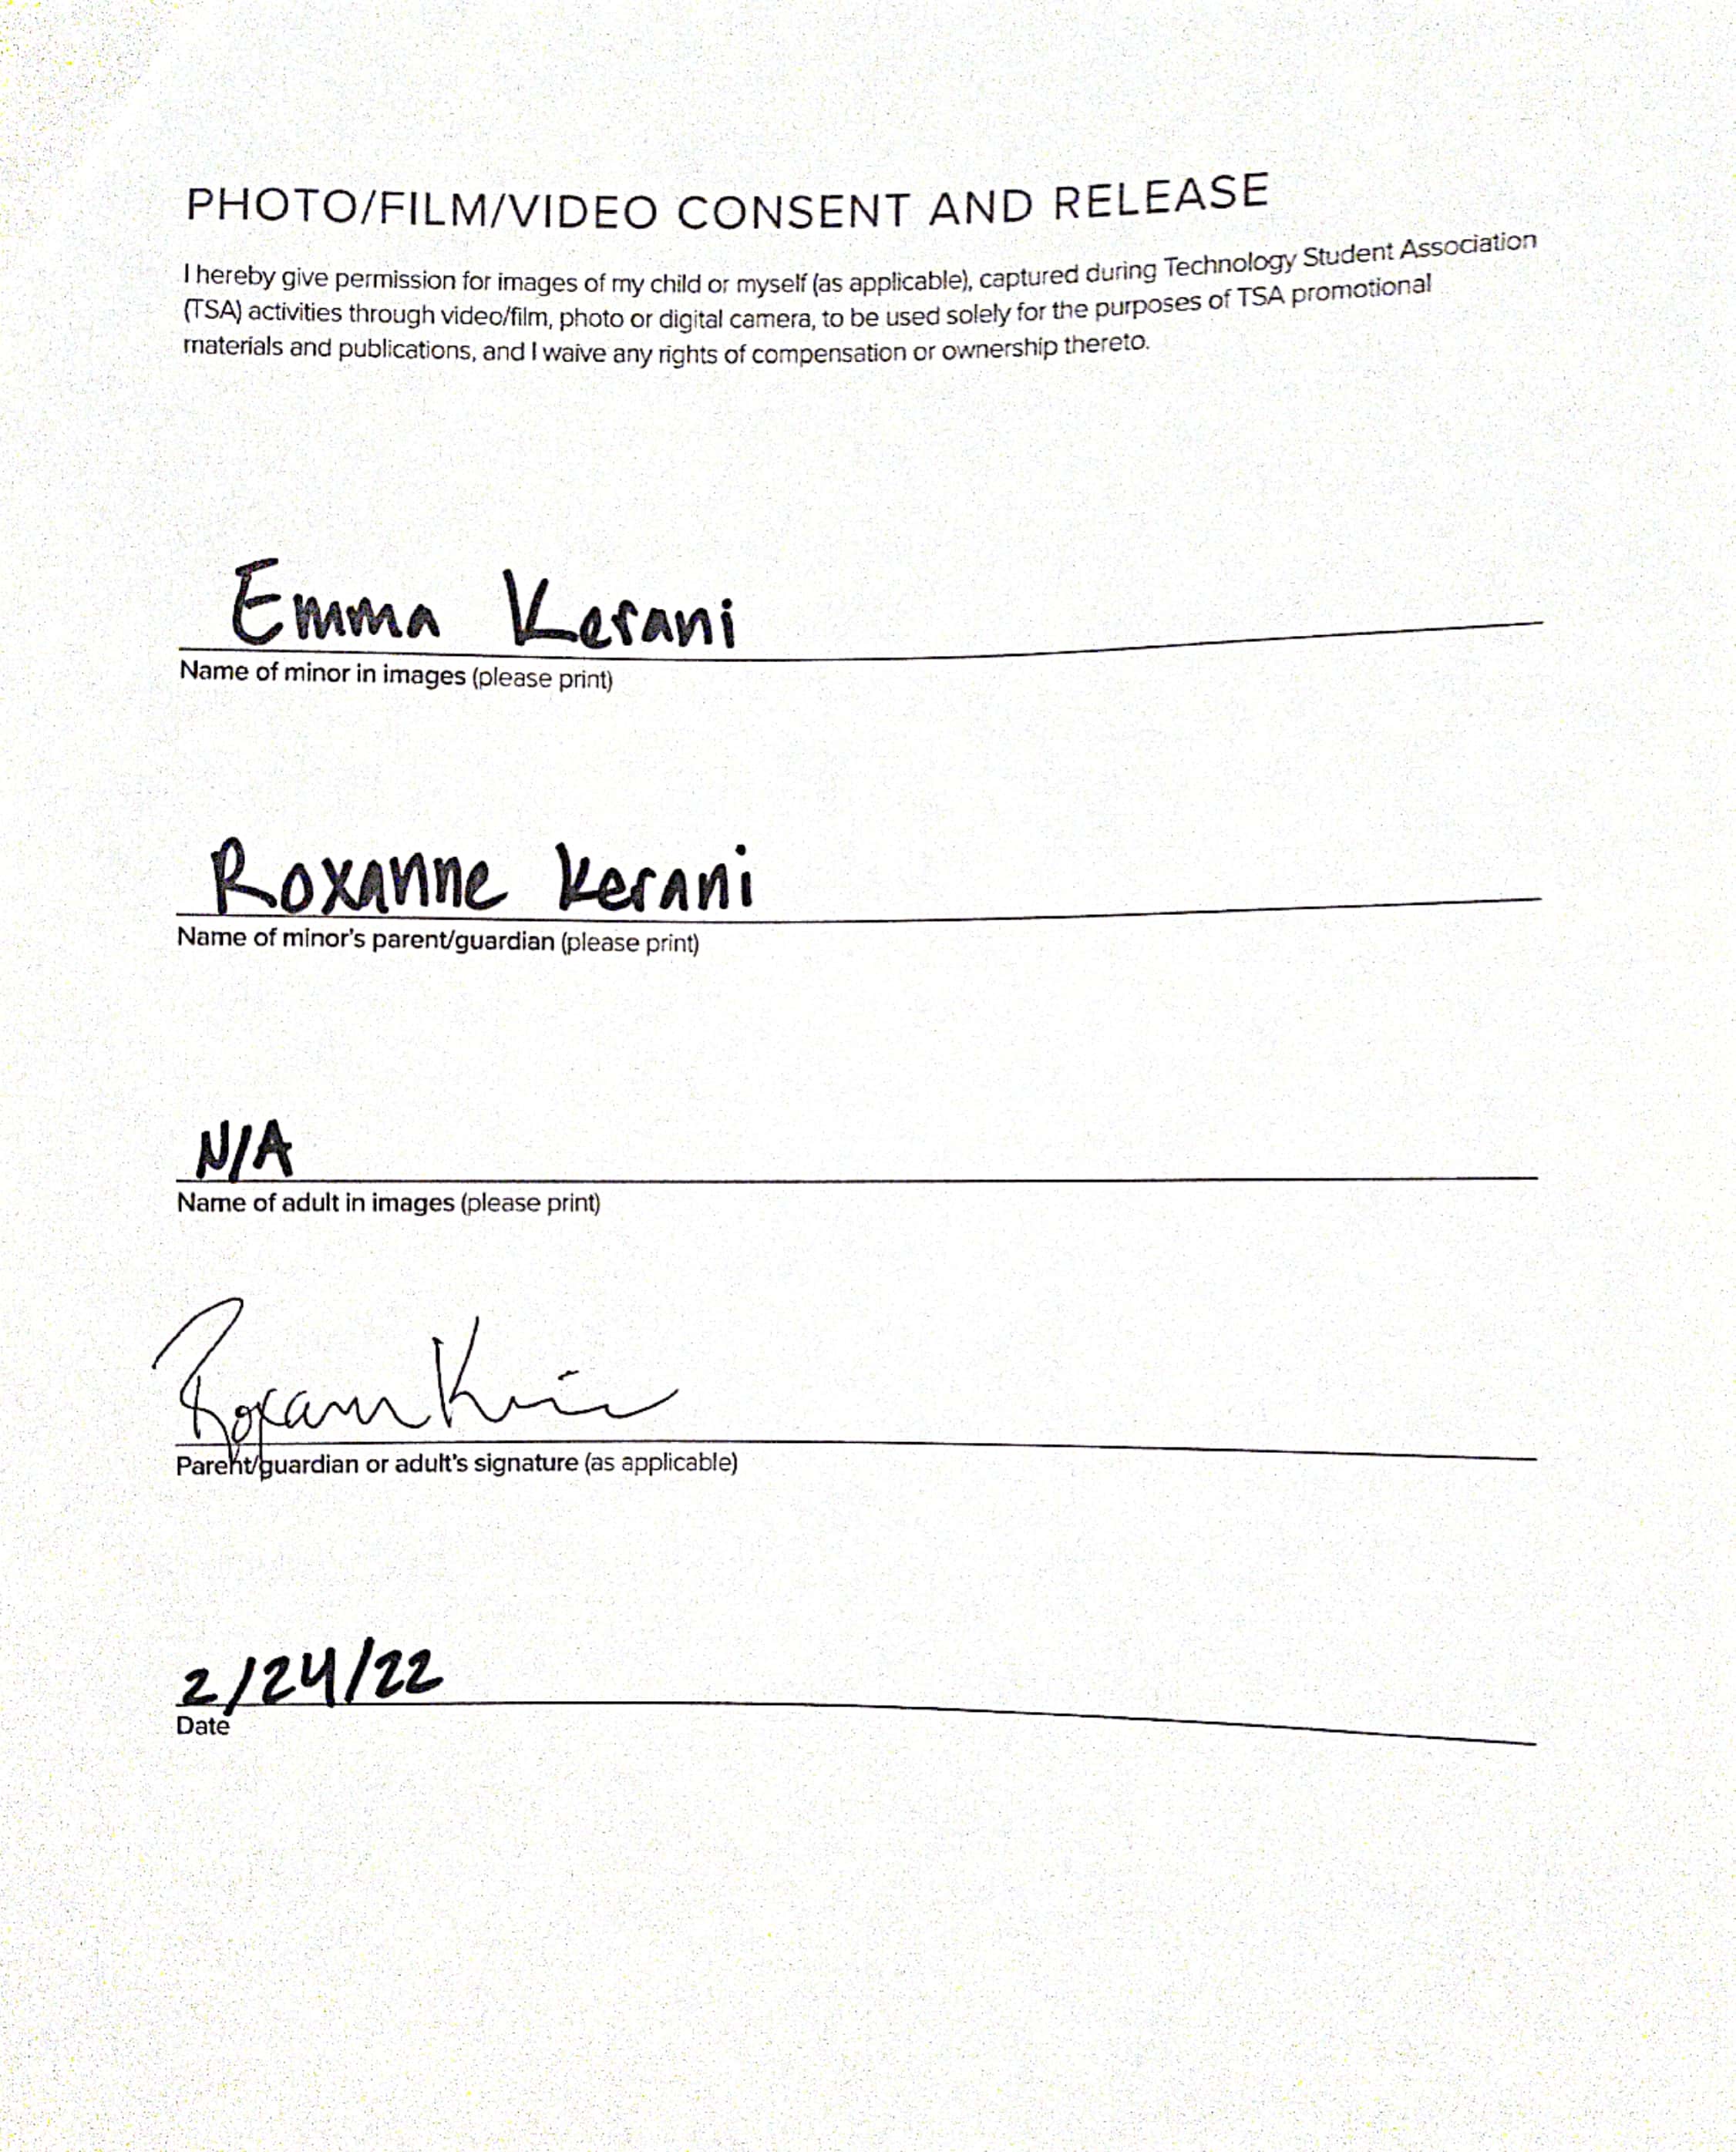 PHOTO/FILM/VIDEO CONSENT AND RELEASE
I hereby give permission for images of my child or myself (as applicable), captured during Technology Student Association
(TSA) activities through video/film, photo or digital camera, to be used solely for the purposes of TSA promotional
materials and publications, and I waive any rights of compensation or ownership thereto.
Emma Kerani
Name of minor in images (please print)
Roxanne Kerani
Name of minor's parent/guardian (please print)
N/A
Name of adult in images (please print)
Parent/guardian or adult's signature (as applicable)
2/24/22
Date